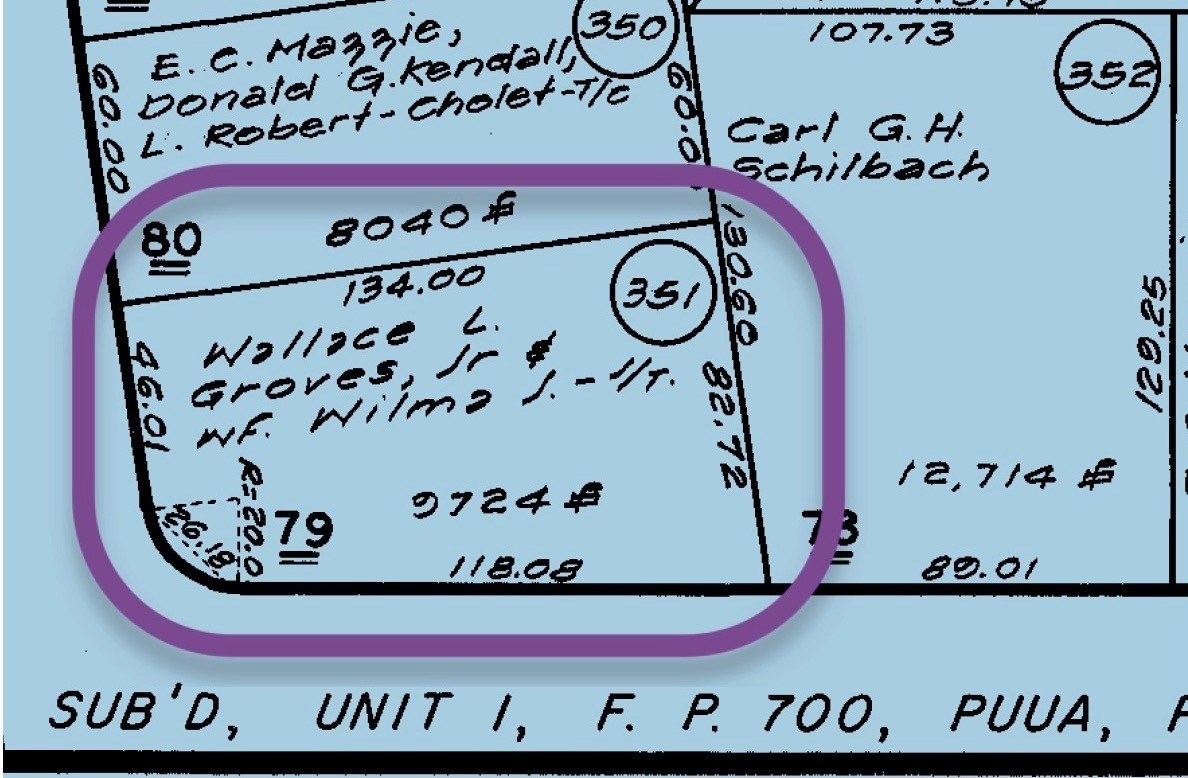 350
E. C. Mazzie,
Donald G. Kendall,
L. Robert-Cholet-T/c
60.00
107.73
352
Carl G. H.
Schilbach
80
8040
134.00
351
130.60
Wallace L.
Groves, Jr &
Wf. Wilma J. - J/T.
46.01
82.72
129.25
26.18
R=20.0
79
9724
118.08
12,714
73
89.01
SUB'D, UNIT 1, F. P. 700, PUUA,